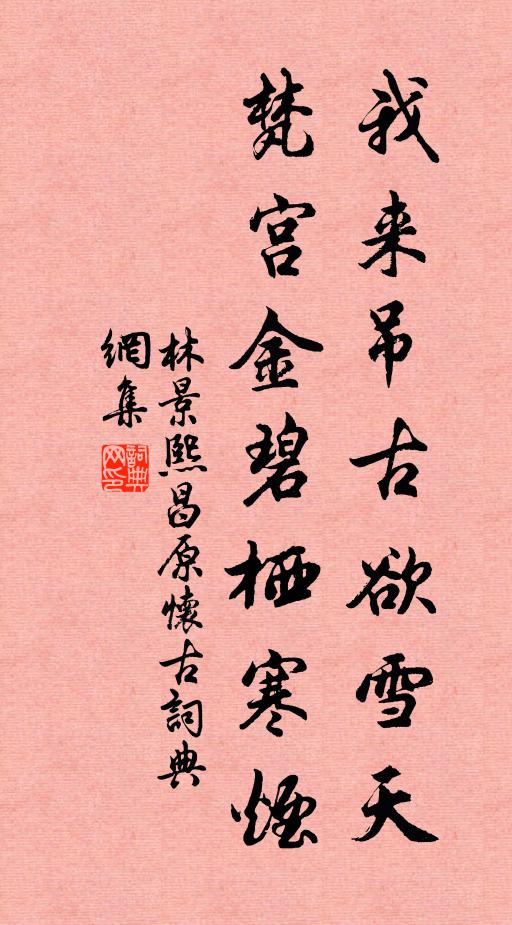 我来吊古欲雪天
梵宫金碧栖寒烟
林景熙昌原懷古詞典
網集
詞典网印